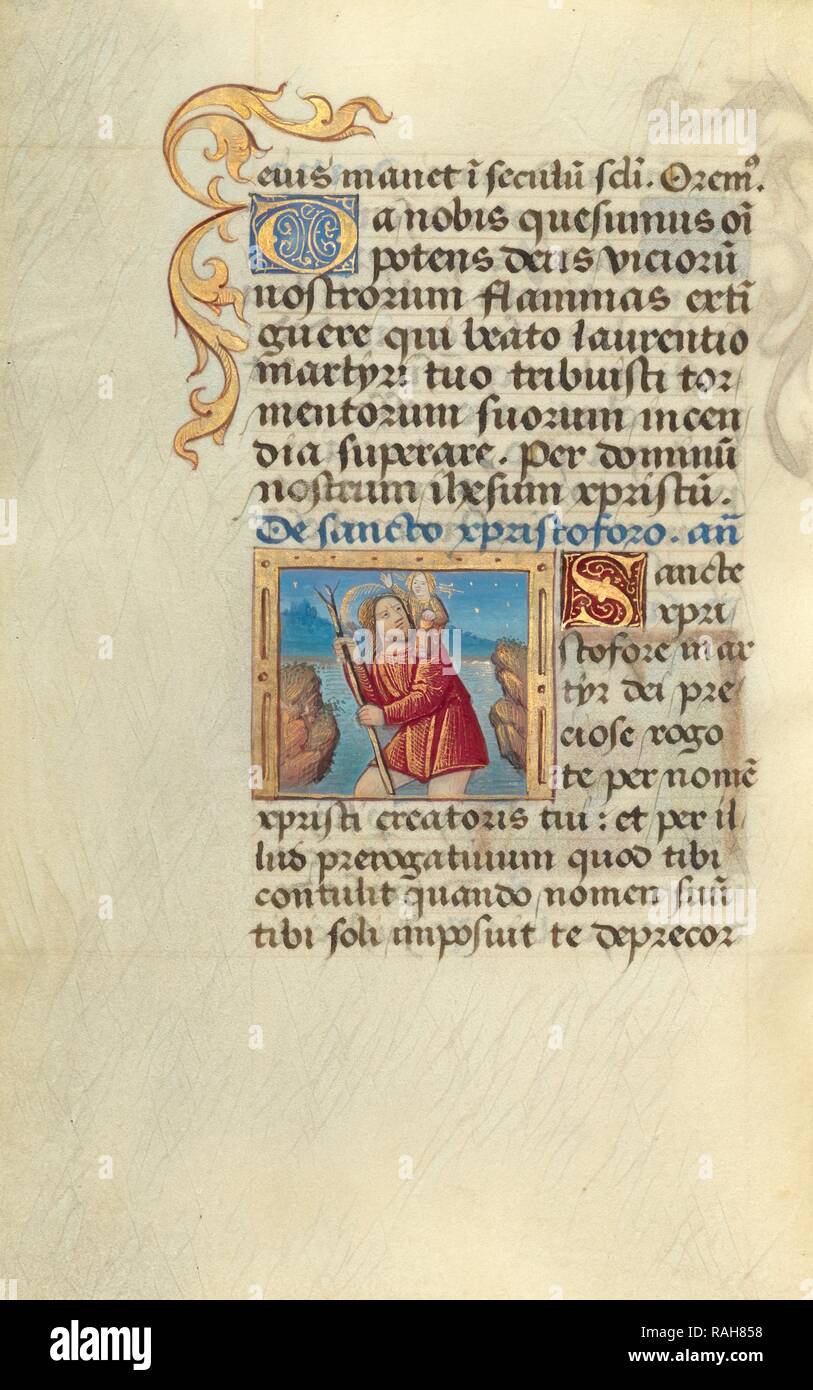 eius manet ī seculū scli. Orem⁹.
Da nobis quesumus oī
potens deus viciorū
nostrorum flammas extī
guere qui beato laurentio
martyri tuo tribuisti tor
mentorum suorum incen
dia superare. Per dominū
nostrum ihesum xpristū.
De sancto xpristoforo. añ
Sancte
xpri
stofore mar
tyr dei pre
ciose rogo
te per nomē
xpristi creatoris tui: et per il
lud prerogatiuum quod tibi
contulit quando nomen suū
tibi soli imposuit te deprecor
alamy
alamy
a
a
a
a
alamy
Image ID: RAH858
www.alamy.com